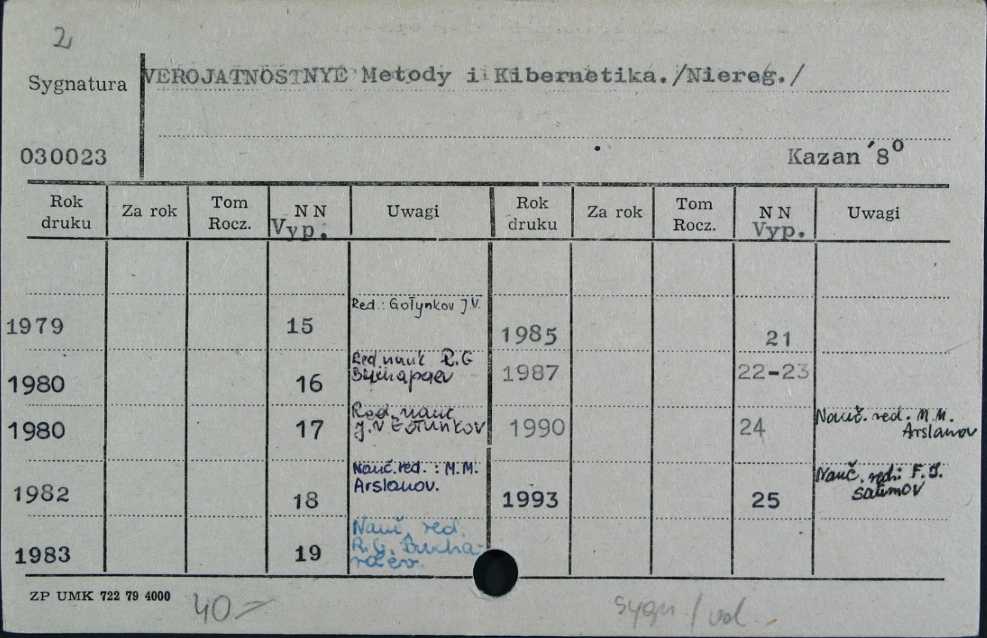 2
Sygnatura VEROJATNOSTNYE Metody i Kibernetika./Niereg./
030023 Kazan '8°
Rok druku Za rok Tom Rocz. N N Vyp. Uwagi Rok druku Za rok Tom Rocz. N N Vyp. Uwagi
1979 15 Red.: Gołynkov J.V. 1985 21
1980 16 Red nauk R.G 1987 22-23
1980 17 Red. nauk. J.V 1990 24 Nauč. red. M.M. Arslanov
1982 18 Nauč. red.: M.M. Arslanov. 1993 25 Nauč. red: F.I. Salimov
1983 19 Nauč. red. R.G. Bucharaev.
ZP UMK 722 79 4000 40.– sygn/vol.